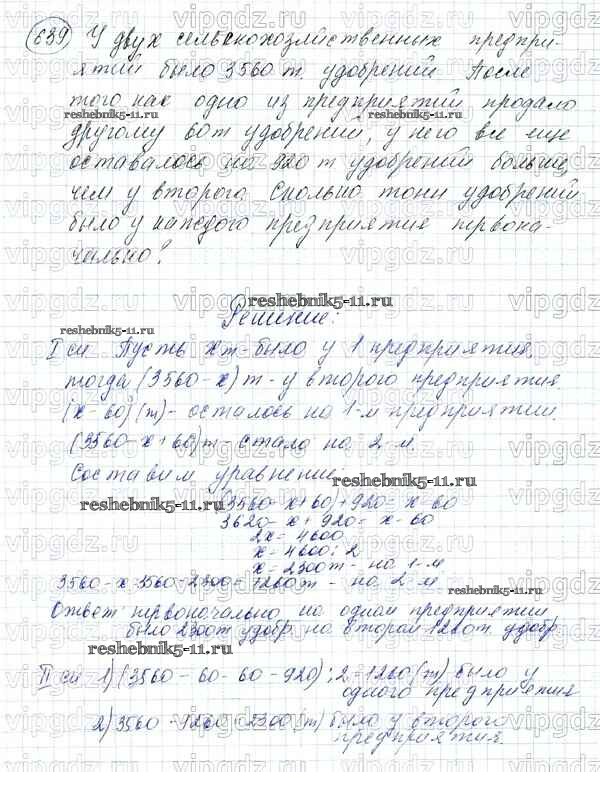 639 У двух сельскохозяйственных предпри-
ятий было 3560 т удобрений. После
того как одно из предприятий продало
reshebnik5-11.ru reshebnik5-11.ru
другому 60 т удобрений, у него все еще
оставалось на 920 т удобрений больше,
чем у второго. Сколько тонн удобрений
было у каждого предприятия первона-
чально?
reshebnik5-11.ru
Решение:
reshebnik5-11.ru
I сп Пусть x т - было у 1 предприятия,
тогда (3560-x) т - у второго предприятия.
(x-60) (т) - осталось на 1-м предприятии.
(3560-x+60) т - стало на 2-м.
Составим уравнение:
reshebnik5-11.ru
(3560-x+60)+920=x-60
3620-x+920=x-60
2x=4600
x=4600:2
x=2300 т - на 1-м
3560-x=3560-2300=1260 т - на 2-м
reshebnik5-11.ru
Ответ первоначально на одном предприятии
было 2300 т удобр. на втором 1260 т. удобр
reshebnik5-11.ru
II сп 1) (3560-60-60-920):2=1260 (т) было у
одного предприятия
2) 3560-1260=2300 (т) было у второго
предприятия.